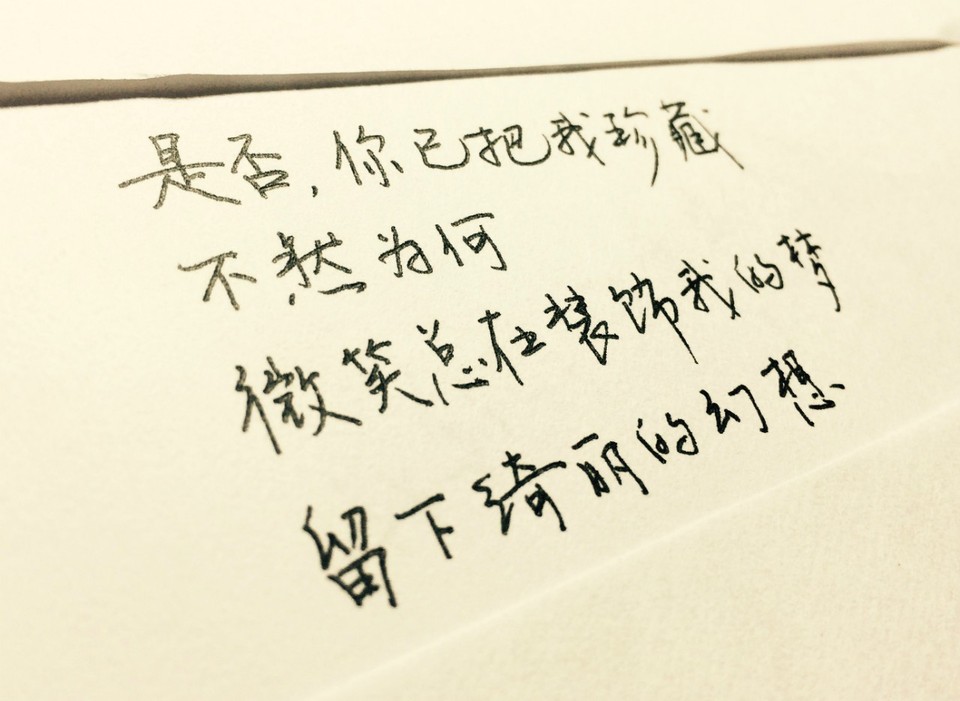 是否,你已把我珍藏
不然为何
微笑总在装饰我的梦
留下绮丽的幻想